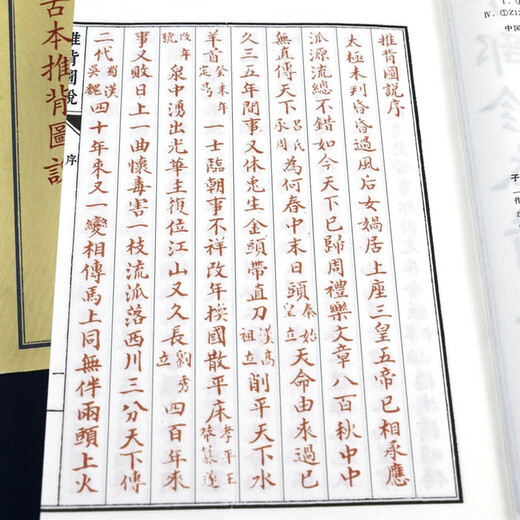 推背圖說序
太極未判昏昏過風后女媧居上座三皇五帝已相承應
派源流總不錯如今天下已歸周禮樂文章八百秋中中
無直傳天下呂氏承周為何春中末日頭秦始皇立天命由來過已
久三五年間事又休先生金頭帶直刀漢高祖立削平天下水
羊首癸未年定号一士臨朝事不祥改年國散平床孝平王莽篡逆
改年號泉中湧出光華主復位江山又久長劉秀立四百年來
事又敗日上一曲懷毒害一枝流派落西川三分天下傳
二代蜀漢吳魏四十年來又一變相傳馬上同無伴兩頭上火
推背圖說
序
一
古本推背圖說
Ⅳ. ①Z1
中国
子